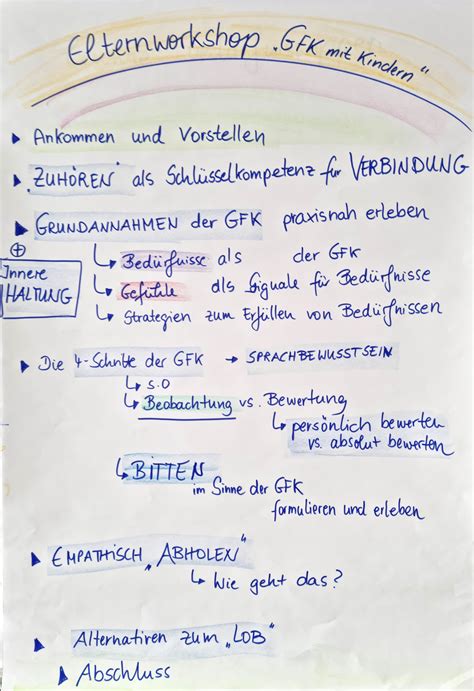 Elternworkshop „GFK mit Kindern“
▶ Ankommen und Vorstellen
▶ „ZUHÖREN“ als Schlüsselkompetenz für VERBINDUNG
▶ GRUNDANNAHMEN der GFK praxisnah erleben
⊕
Innere
HALTUNG
↳ Bedürfnisse als der GFK
↳ Gefühle als Signale für Bedürfnisse
↳ Strategien zum Erfüllen von Bedürfnissen
▶ Die 4-Schritte der GFK → SPRACHBEWUSSTSEIN
↳ s.o
↳ Beobachtung vs. Bewertung
↳ persönlich bewerten
vs. absolut bewerten
↳ BITTEN
im Sinne der GFK
formulieren und erleben
▶ EMPATHISCH „ABHOLEN“
↳ Wie geht das?
▶ Alternativen zum „LOB“
▶ Abschluss